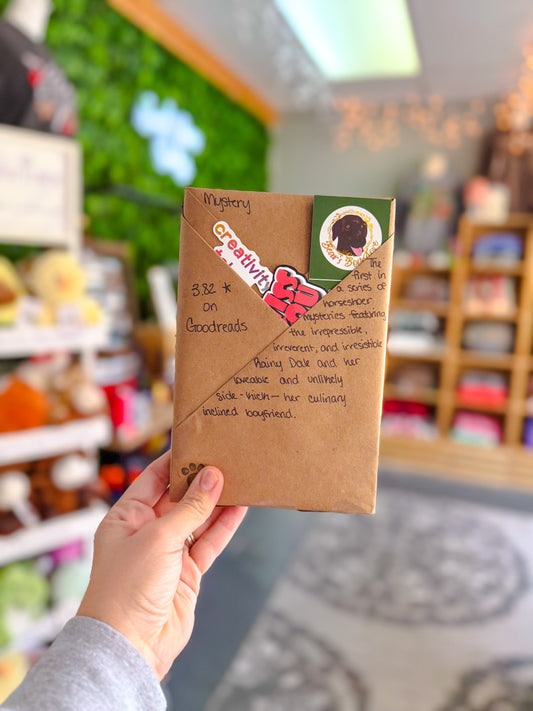 Mystery
creativity
3.82 * on Goodreads
the
first in
a series of
horseshoer
mysteries featuring
the irrepressible,
irreverent, and irresistible
Rainy Dale and her
loveable and unlikely
side-kick— her culinary
inclined boyfriend.